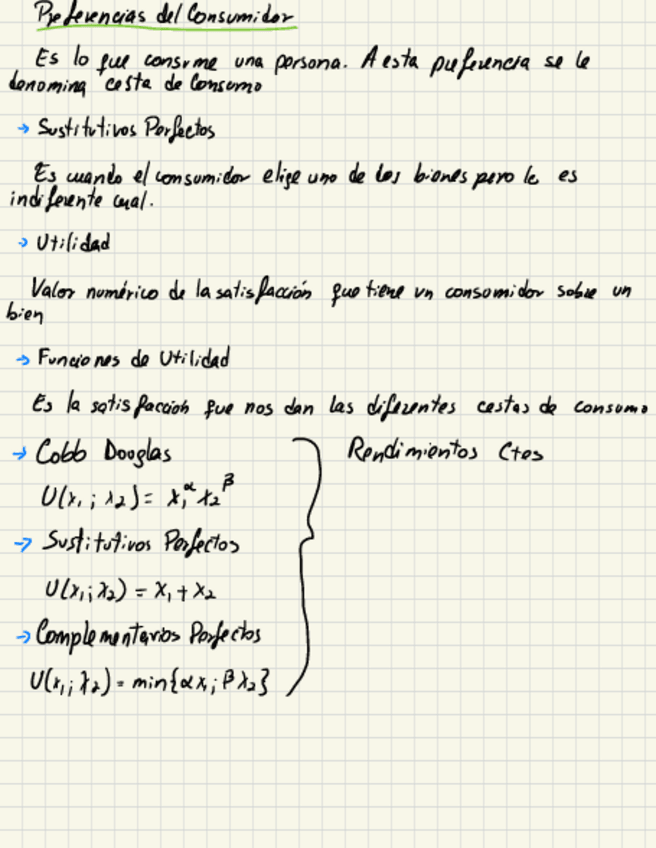 Preferencias del Consumidor
Es lo que consume una persona. A esta preferencia se le
denomina cesta de Consumo
→ Sustitutivos Perfectos
Es cuando el consumidor elige uno de los bienes pero le es
indiferente cual.
→ Utilidad
Valor numérico de la satisfacción que tiene un consumidor sobre un
bien
→ Funciones de Utilidad
Es la satisfacción que nos dan las diferentes cestas de consumo
→ Cobb Douglas
U(x₁; x₂) = x₁^α x₂^β
→ Sustitutivos Perfectos
U(x₁; x₂) = x₁ + x₂
→ Complementarios Perfectos
U(x₁; x₂) = min{αx₁; βx₂}
Rendimientos Ctes